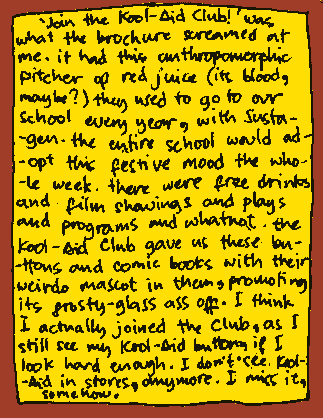 'Join the Kool-Aid Club!' was
what the brochure screamed at
me. it had this anthropomorphic
pitcher of red juice (its blood,
maybe?) they used to go to our
school every year, with Susta-
-gen. the entire school would ad-
-opt this festive mood the who-
-le week. there were free drinks
and film showings and plays
and programs and whatnot. the
Kool-Aid Club gave us these bu-
-ttons and comic books with their
weirdo mascot in them, promoting
its frosty-glass ass off. I think
I actually joined the Club, as I
still see my Kool-Aid button, if I
look hard enough. I don't see Kool-
-Aid in stores, anymore. I miss it,
somehow.